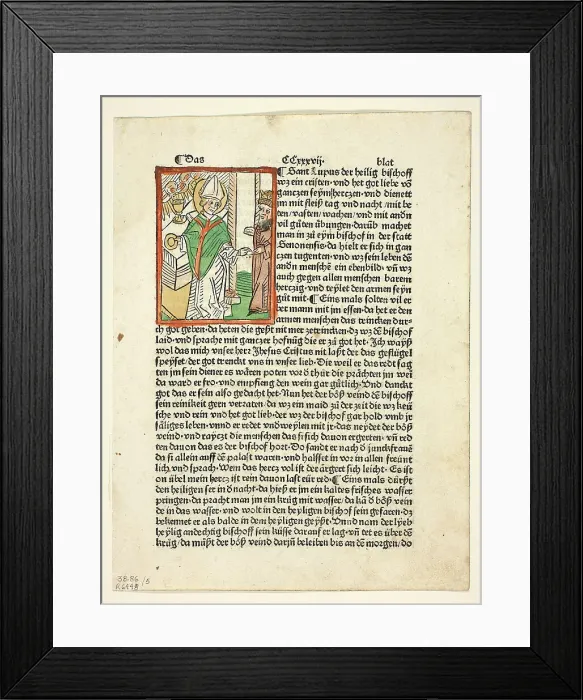 ¶Das CCxxxvij. blat
¶Sant Lupus der heilig bischoff
wz ein cristen·vnd het got liebe võ
ganczen seym herczen·vnd dienett
im mit fleiß tag vnd nacht/mit be
ten/vasten/wachen/vnd mit andn
vil gůten übungen·darüb machet
man in zů eym bischof in der statt
Senonensis·da hielt er sich in gan
czen tugenten·vnd wz sein leben dẽ
andn menschẽ ein ebenbild·vñ wz
auch gegen allen menschen barem
herczig·vnd teylet den armen seyn
gůt mit·¶Eins mals solten vil er
ber mann mit im essen·da het er den
armen menschen das trincken durc
ch got geben·da heten die gest nit mer ze trincken·dz wz dẽ bischof
laid·vnd sprach mit ganczer hofnũg die er zů got het·Ich wayß
wol das mich vnser herr Jhesus Cristus nit laßt der das geflügel
speyset/der got trenckt vns in vnser lieb·Die weil er das redt sag
ten jm sein diener es wären poten vor d thür die prächten jm wei
da ward er fro·vnd empfieng den wein gar gůtlich·Vnd danckt
got das er sein also gedacht het·Nun het der böß veind dẽ bischoff
sein reinikeit gern verraten·da wz ein maid zů der zeit die wz keü
sche vnd rein vnd het got lieb·der wz der bischof gar hold vmb jr
säliges leben·vnnd er redet vndweylen mit jr·das neydet der böß
veind·vnd rayczt die menschen das si sich dauon ergerten·vñ red
ten dauon das es der bischof hort·Do sandt er nach d junckfrauẽ
da si allein auff dẽ palast waren·vnd halsset in vor in allen freünt
lich·vnd sprach·Wem das hercz vol ist der ärgert sich leicht·Es ist
on übel mein hercz ist rein dauon laßt eür red·¶Eins mals dürst
den heiligen ser in d nacht·da hieß er jm ein kaltes frisches wasser
pringen·da pracht man jm ein krůg mit wasser·da kã d böß vein
de in das wasser·vnd wolt in den heyligen bischof sein gefaren·dz
bekennet er als balde in dem heyligen geyst·Vnnd nam der lyeb
heylig andechtig bischoff sein küsse darauf er lag·vñ tet es über dẽ
krůg/da můst der böß veind darjñ beleiben bis an dẽ morgen/do
38.86 /5